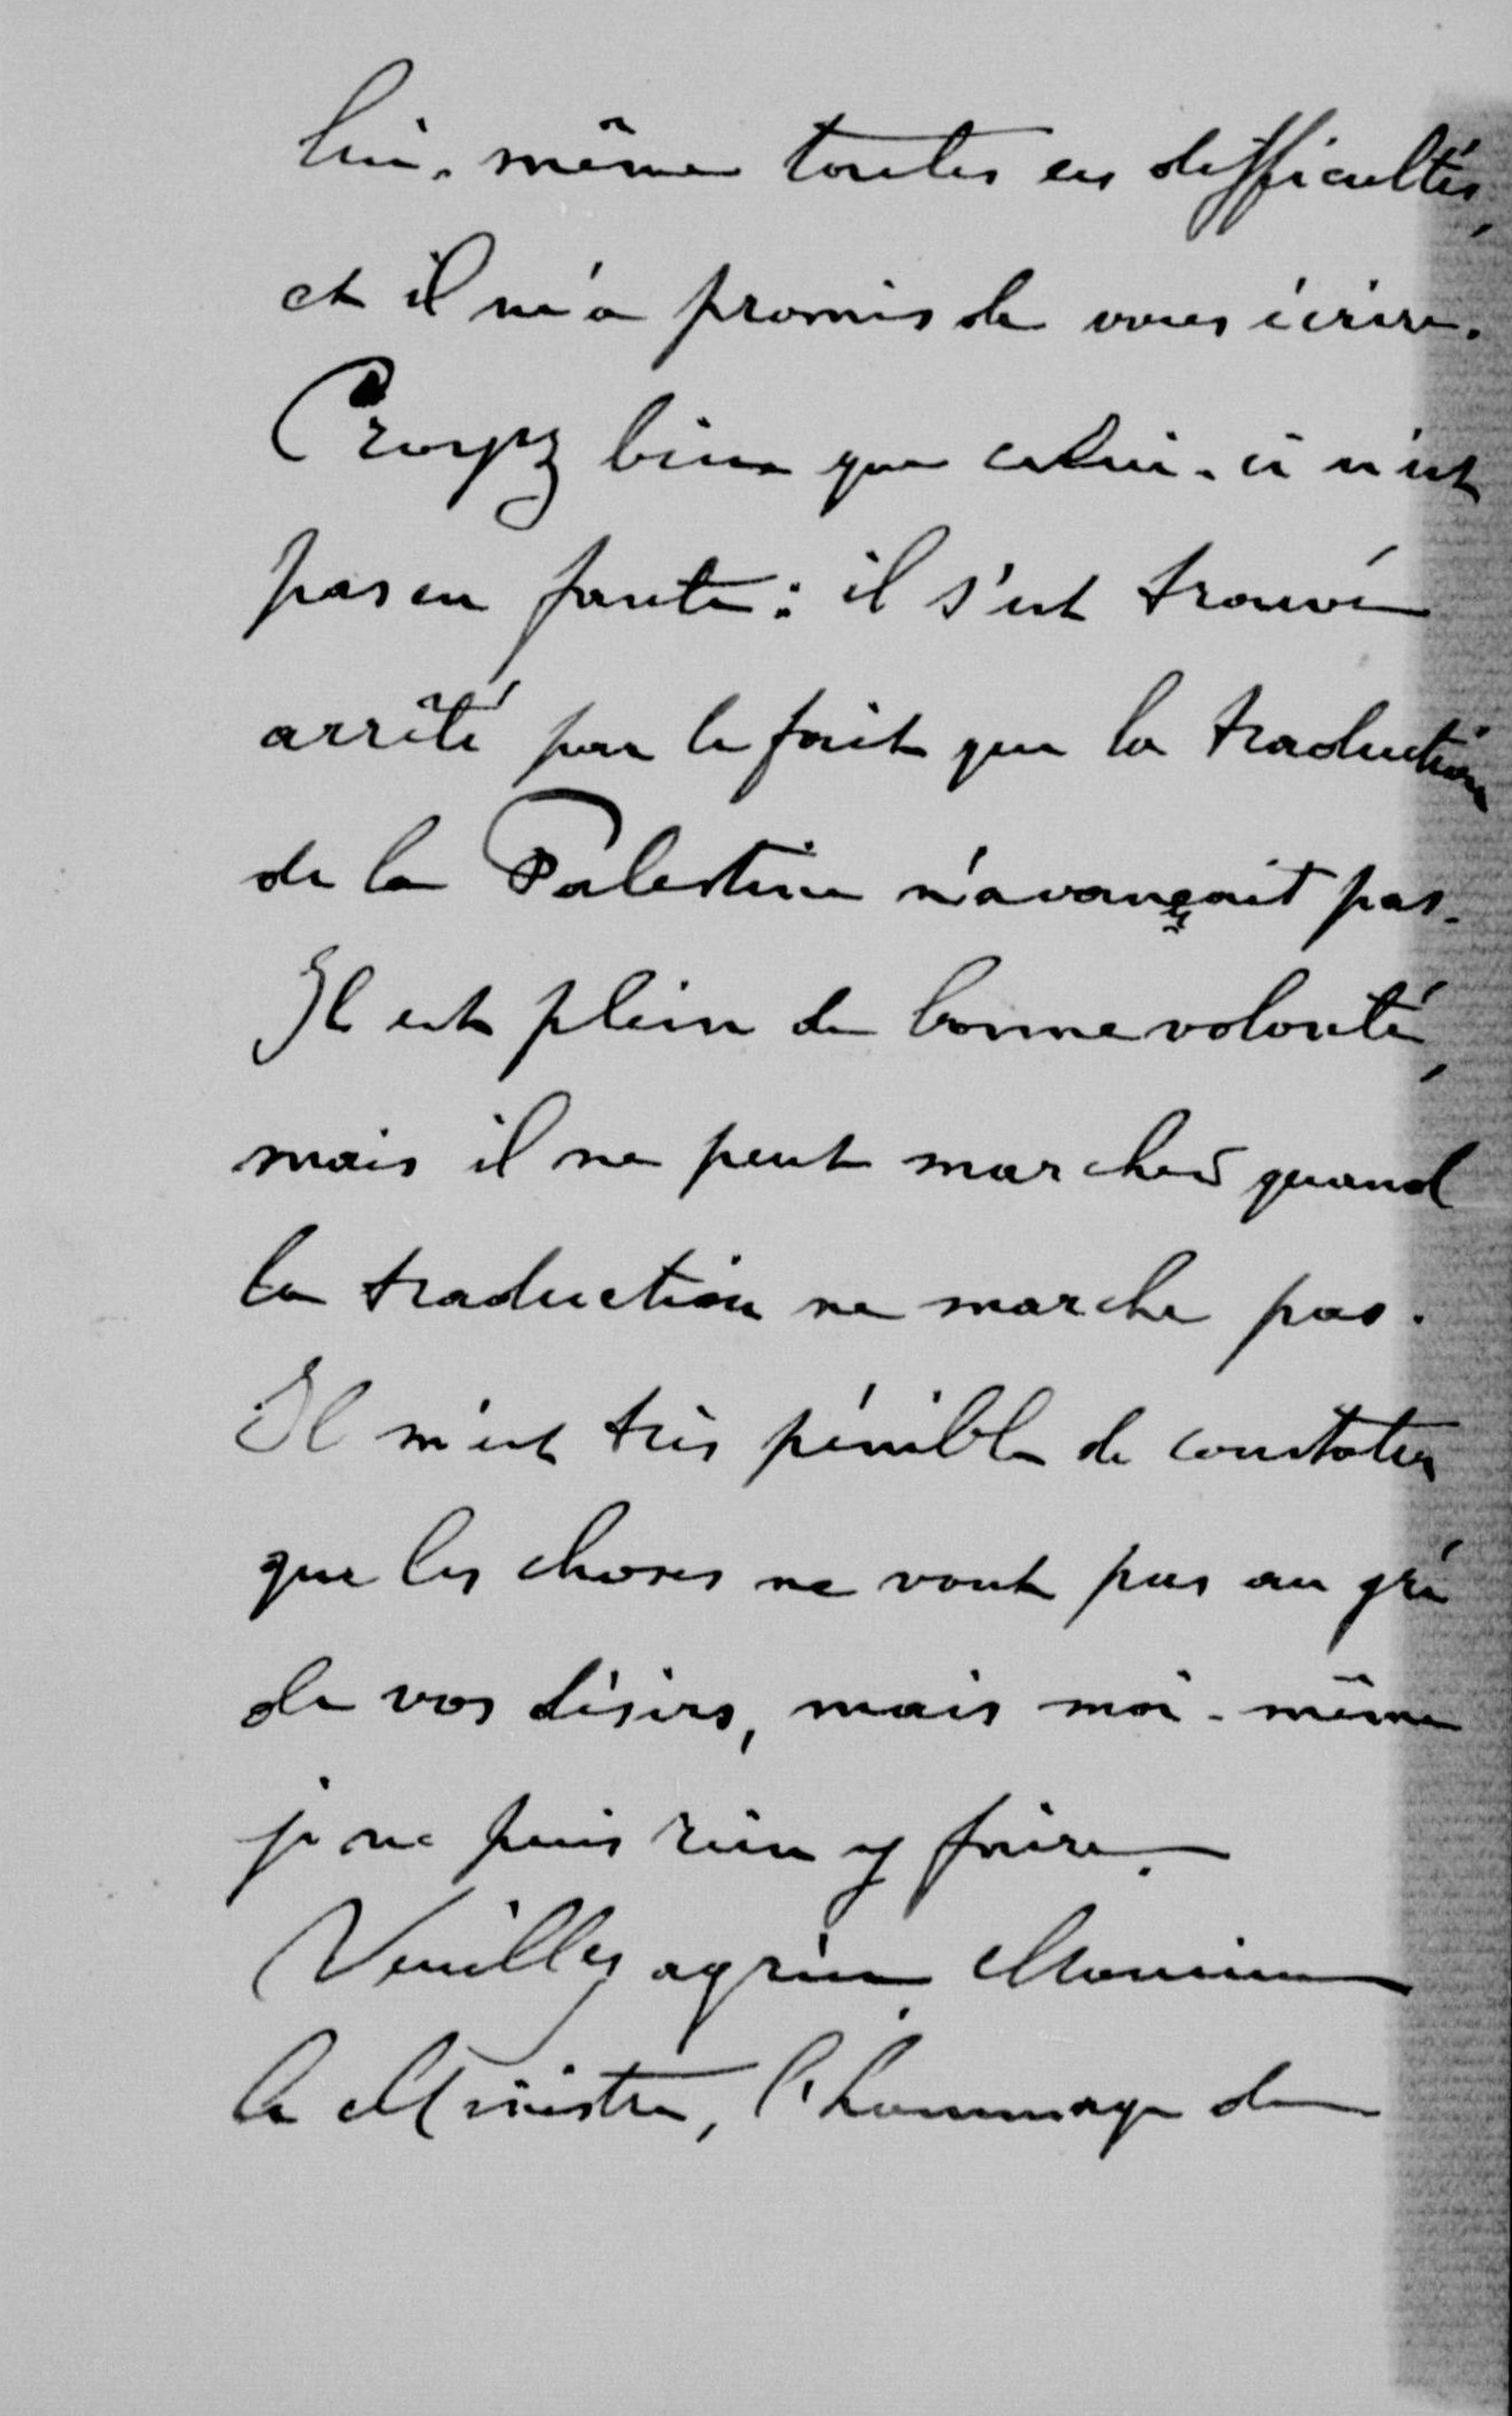 lui-même toutes ces difficultés,
et il m'a promis de vous écrire.
Croyez bien que celui-ci n'est
pas en faute : il s'est trouvé
arrêté par le fait que la traduction
de la Palestine n'avançait pas.
Il est plein de bonne volonté,
mais il ne peut marcher quand
la traduction ne marche pas.
Il m'est très pénible de constater
que les choses ne vont pas au gré
de vos désirs, mais moi-même
je ne puis rien y faire.
Veuillez agréer, Monsieur
le Ministre, l'hommage de